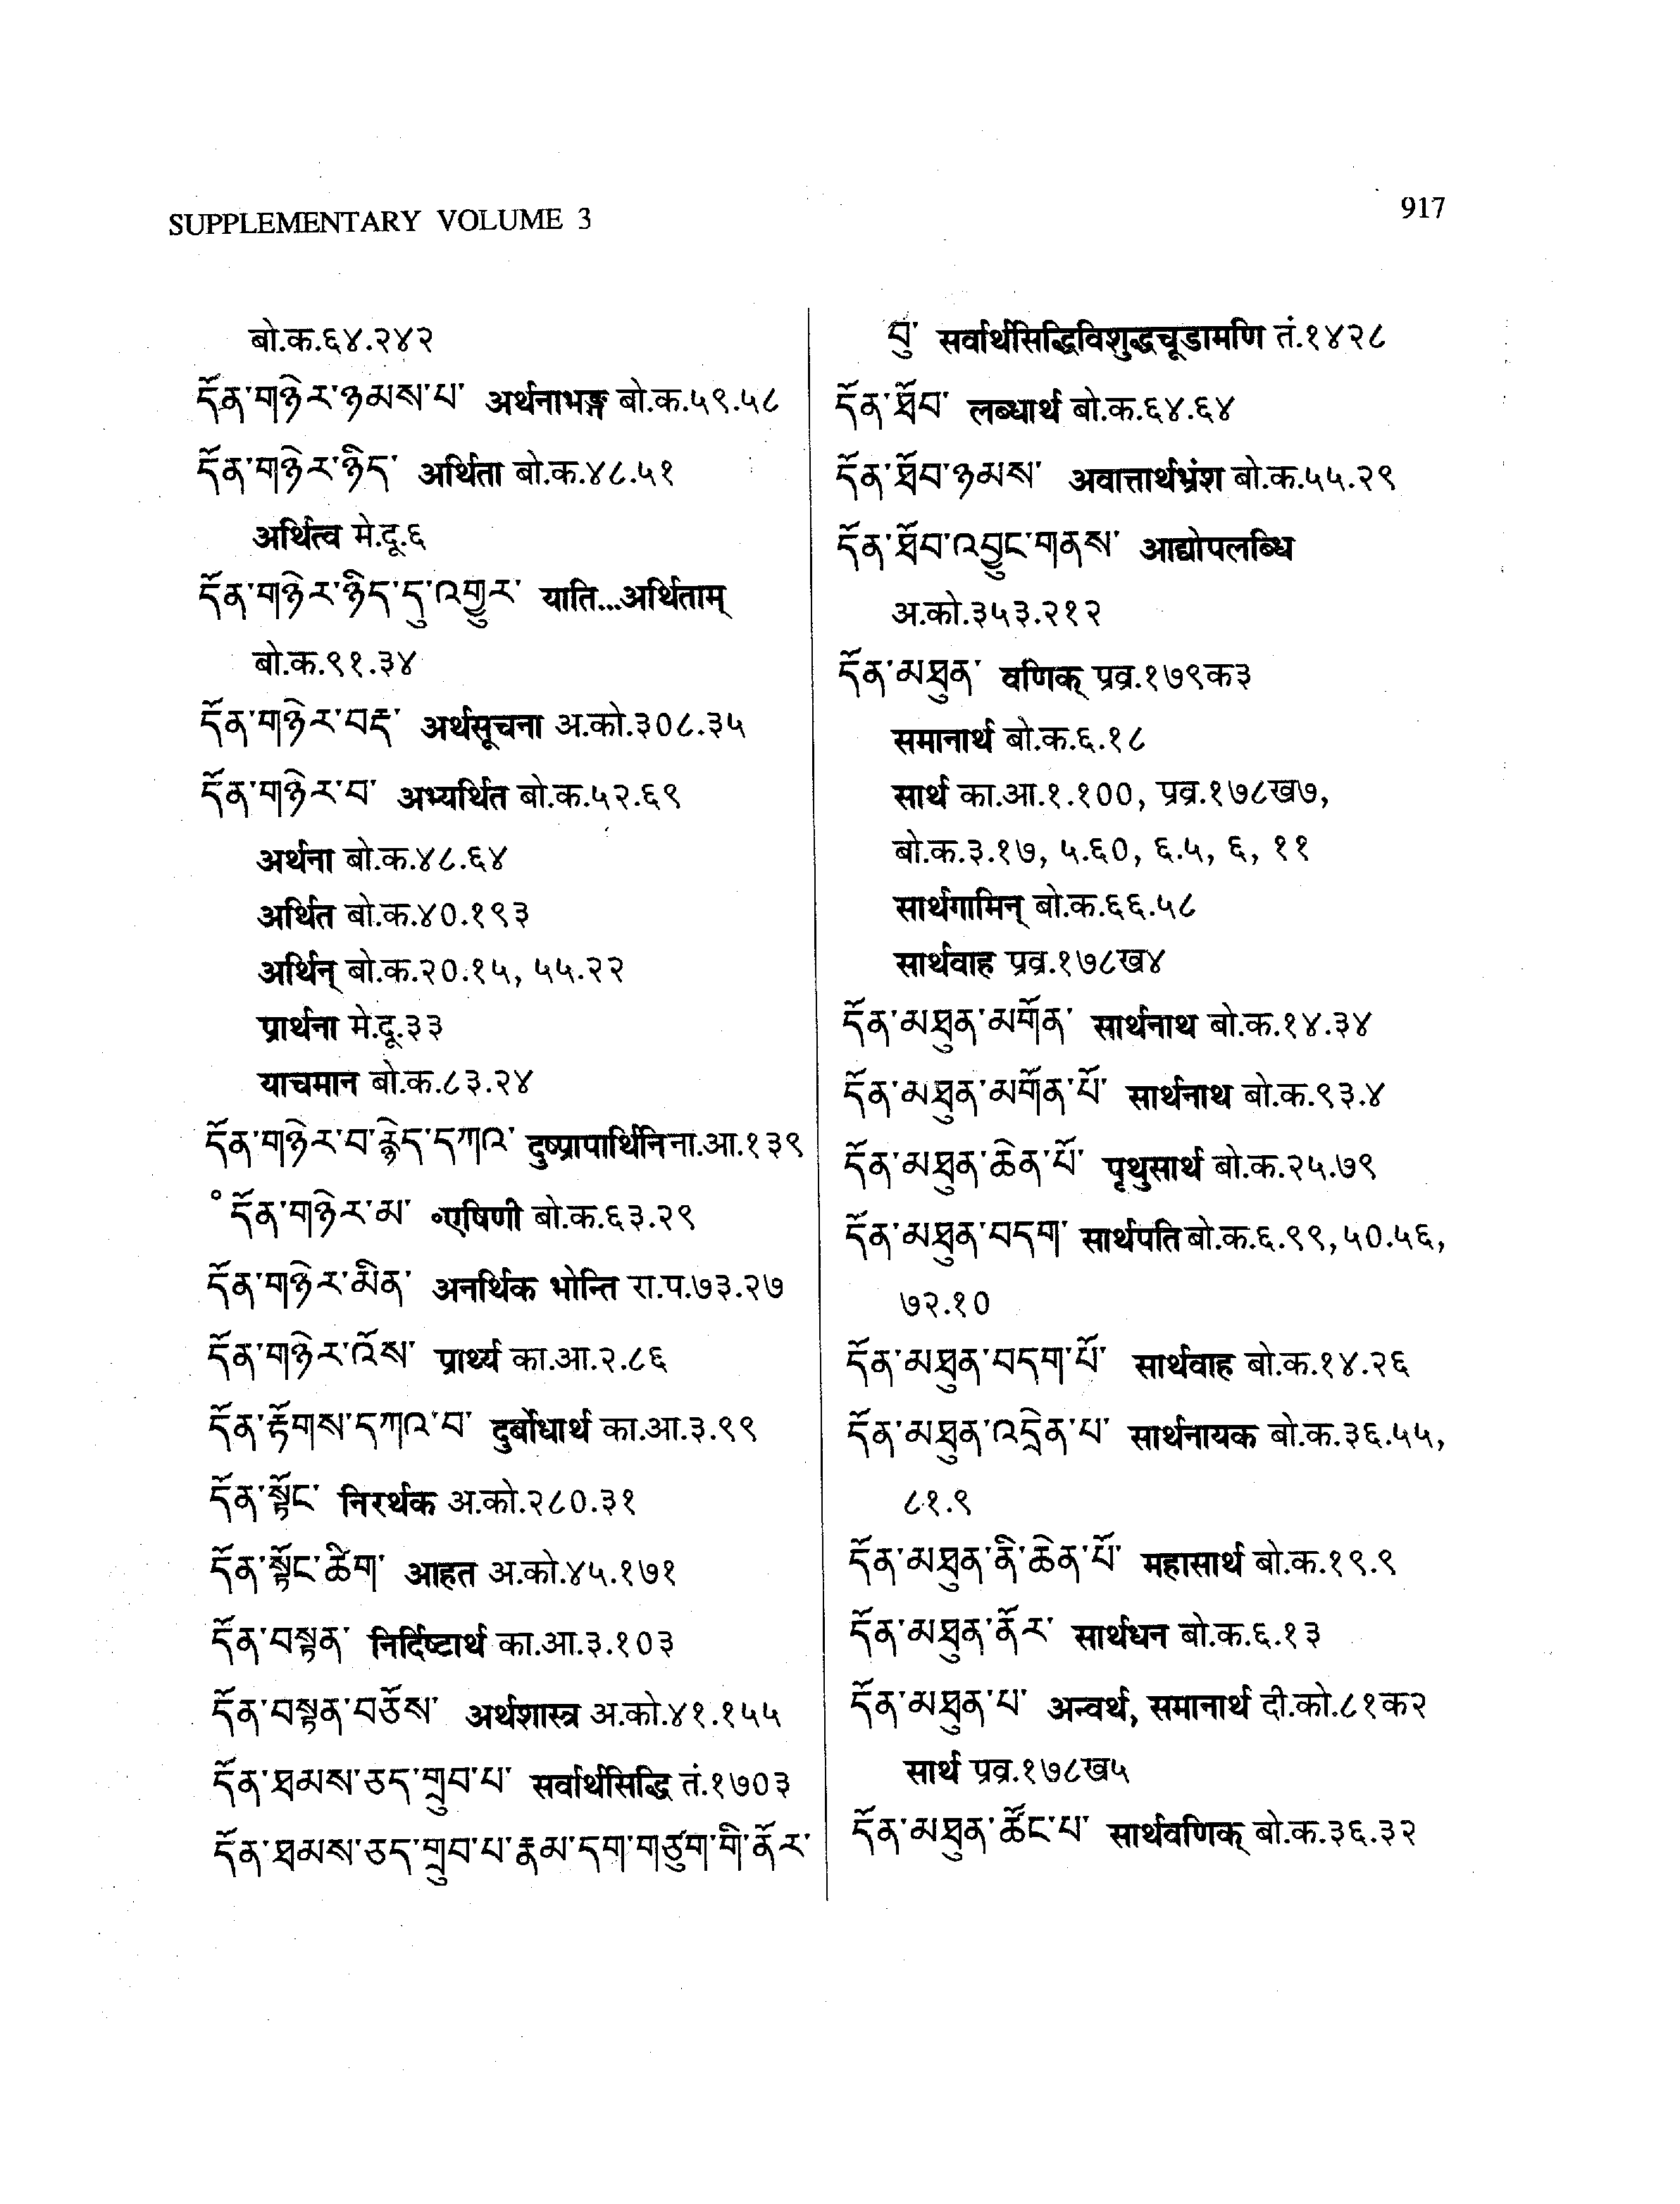 SUPPLEMENTARY VOLUME 3
917
बो.क.६४.२४२
དོན་གཉེར་ཉམས་པ་ अर्थनाभङ्ग बो.क.५९.५८
དོན་གཉེར་ཉིད་ अर्थिता बो.क.४८.५१
अर्थित्व मे.दू.६
དོན་གཉེར་ཉིད་དུ་འགྱུར་ याति...अर्थिताम्
बो.क.९१.३४
དོན་གཉེར་བརྡ་ अर्थसूचना अ.को.३०८.३५
དོན་གཉེར་བ་ अभ्यर्थित बो.क.५२.६९
अर्थना बो.क.४८.६४
अर्थित बो.क.४०.१९३
अर्थिन् बो.क.२०.१५, ५५.२२
प्रार्थना मे.दू.३३
याचमान बो.क.८३.२४
དོན་གཉེར་བ་རྙེད་དཀའ་ दुष्प्रापार्थिनि ना.आ.१३९
°དོན་གཉེར་མ་ ॰एषिणी बो.क.६३.२९
དོན་གཉེར་མིན་ अनर्थिक भोन्ति रा.प.७३.२७
དོན་གཉེར་འོས་ प्रार्थ्य का.आ.२.८६
དོན་རྟོགས་དཀའ་བ་ दुर्बोधार्थ का.आ.३.९९
དོན་སྟོང་ निरर्थक अ.को.२८०.३१
དོན་སྟོང་ཚིག་ आहत अ.को.४५.१७१
དོན་བསྟན་ निर्दिष्टार्थ का.आ.३.१०३
དོན་བསྟན་བཅོས་ अर्थशास्त्र अ.को.४१.१५५
དོན་ཐམས་ཅད་གྲུབ་པ་ सर्वार्थसिद्धि तं.१७०३
དོན་ཐམས་ཅད་གྲུབ་པ་རྣམ་དག་གཙུག་གི་ནོར་
བུ་ सर्वार्थसिद्धिविशुद्धचूडामणि तं.१४२८
དོན་ཐོབ་ लब्धार्थ बो.क.६४.६४
དོན་ཐོབ་ཉམས་ अवात्तार्थभ्रंश बो.क.५५.२९
དོན་ཐོབ་འབྱུང་གནས་ आद्योपलब्धि
अ.को.३५३.२१२
དོན་མཐུན་ वणिक् प्रव्र.१७९क३
समानार्थ बो.क.६.१८
सार्थ का.आ.१.१००, प्रव्र.१७८ख७,
बो.क.३.१७, ५.६०, ६.५, ६, ११
सार्थगामिन् बो.क.६६.५८
सार्थवाह प्रव्र.१७८ख४
དོན་མཐུན་མགོན་ सार्थनाथ बो.क.१४.३४
དོན་མཐུན་མགོན་པོ་ सार्थनाथ बो.क.९३.४
དོན་མཐུན་ཆེན་པོ་ पृथुसार्थ बो.क.२५.७९
དོན་མཐུན་བདག་ सार्थपति बो.क.६.९९, ५०.५६,
७२.१०
དོན་མཐུན་བདག་པོ་ सार्थवाह बो.क.१४.२६
དོན་མཐུན་འདྲེན་པ་ सार्थनायक बो.क.३६.५५,
८१.९
དོན་མཐུན་ནི་ཆེན་པོ་ महासार्थ बो.क.१९.९
དོན་མཐུན་ནོར་ सार्थधन बो.क.६.१३
དོན་མཐུན་པ་ अन्वर्थ, समानार्थ दी.को.८१क२
सार्थ प्रव्र.१७८ख५
དོན་མཐུན་ཚོང་པ་ सार्थवणिक् बो.क.३६.३२